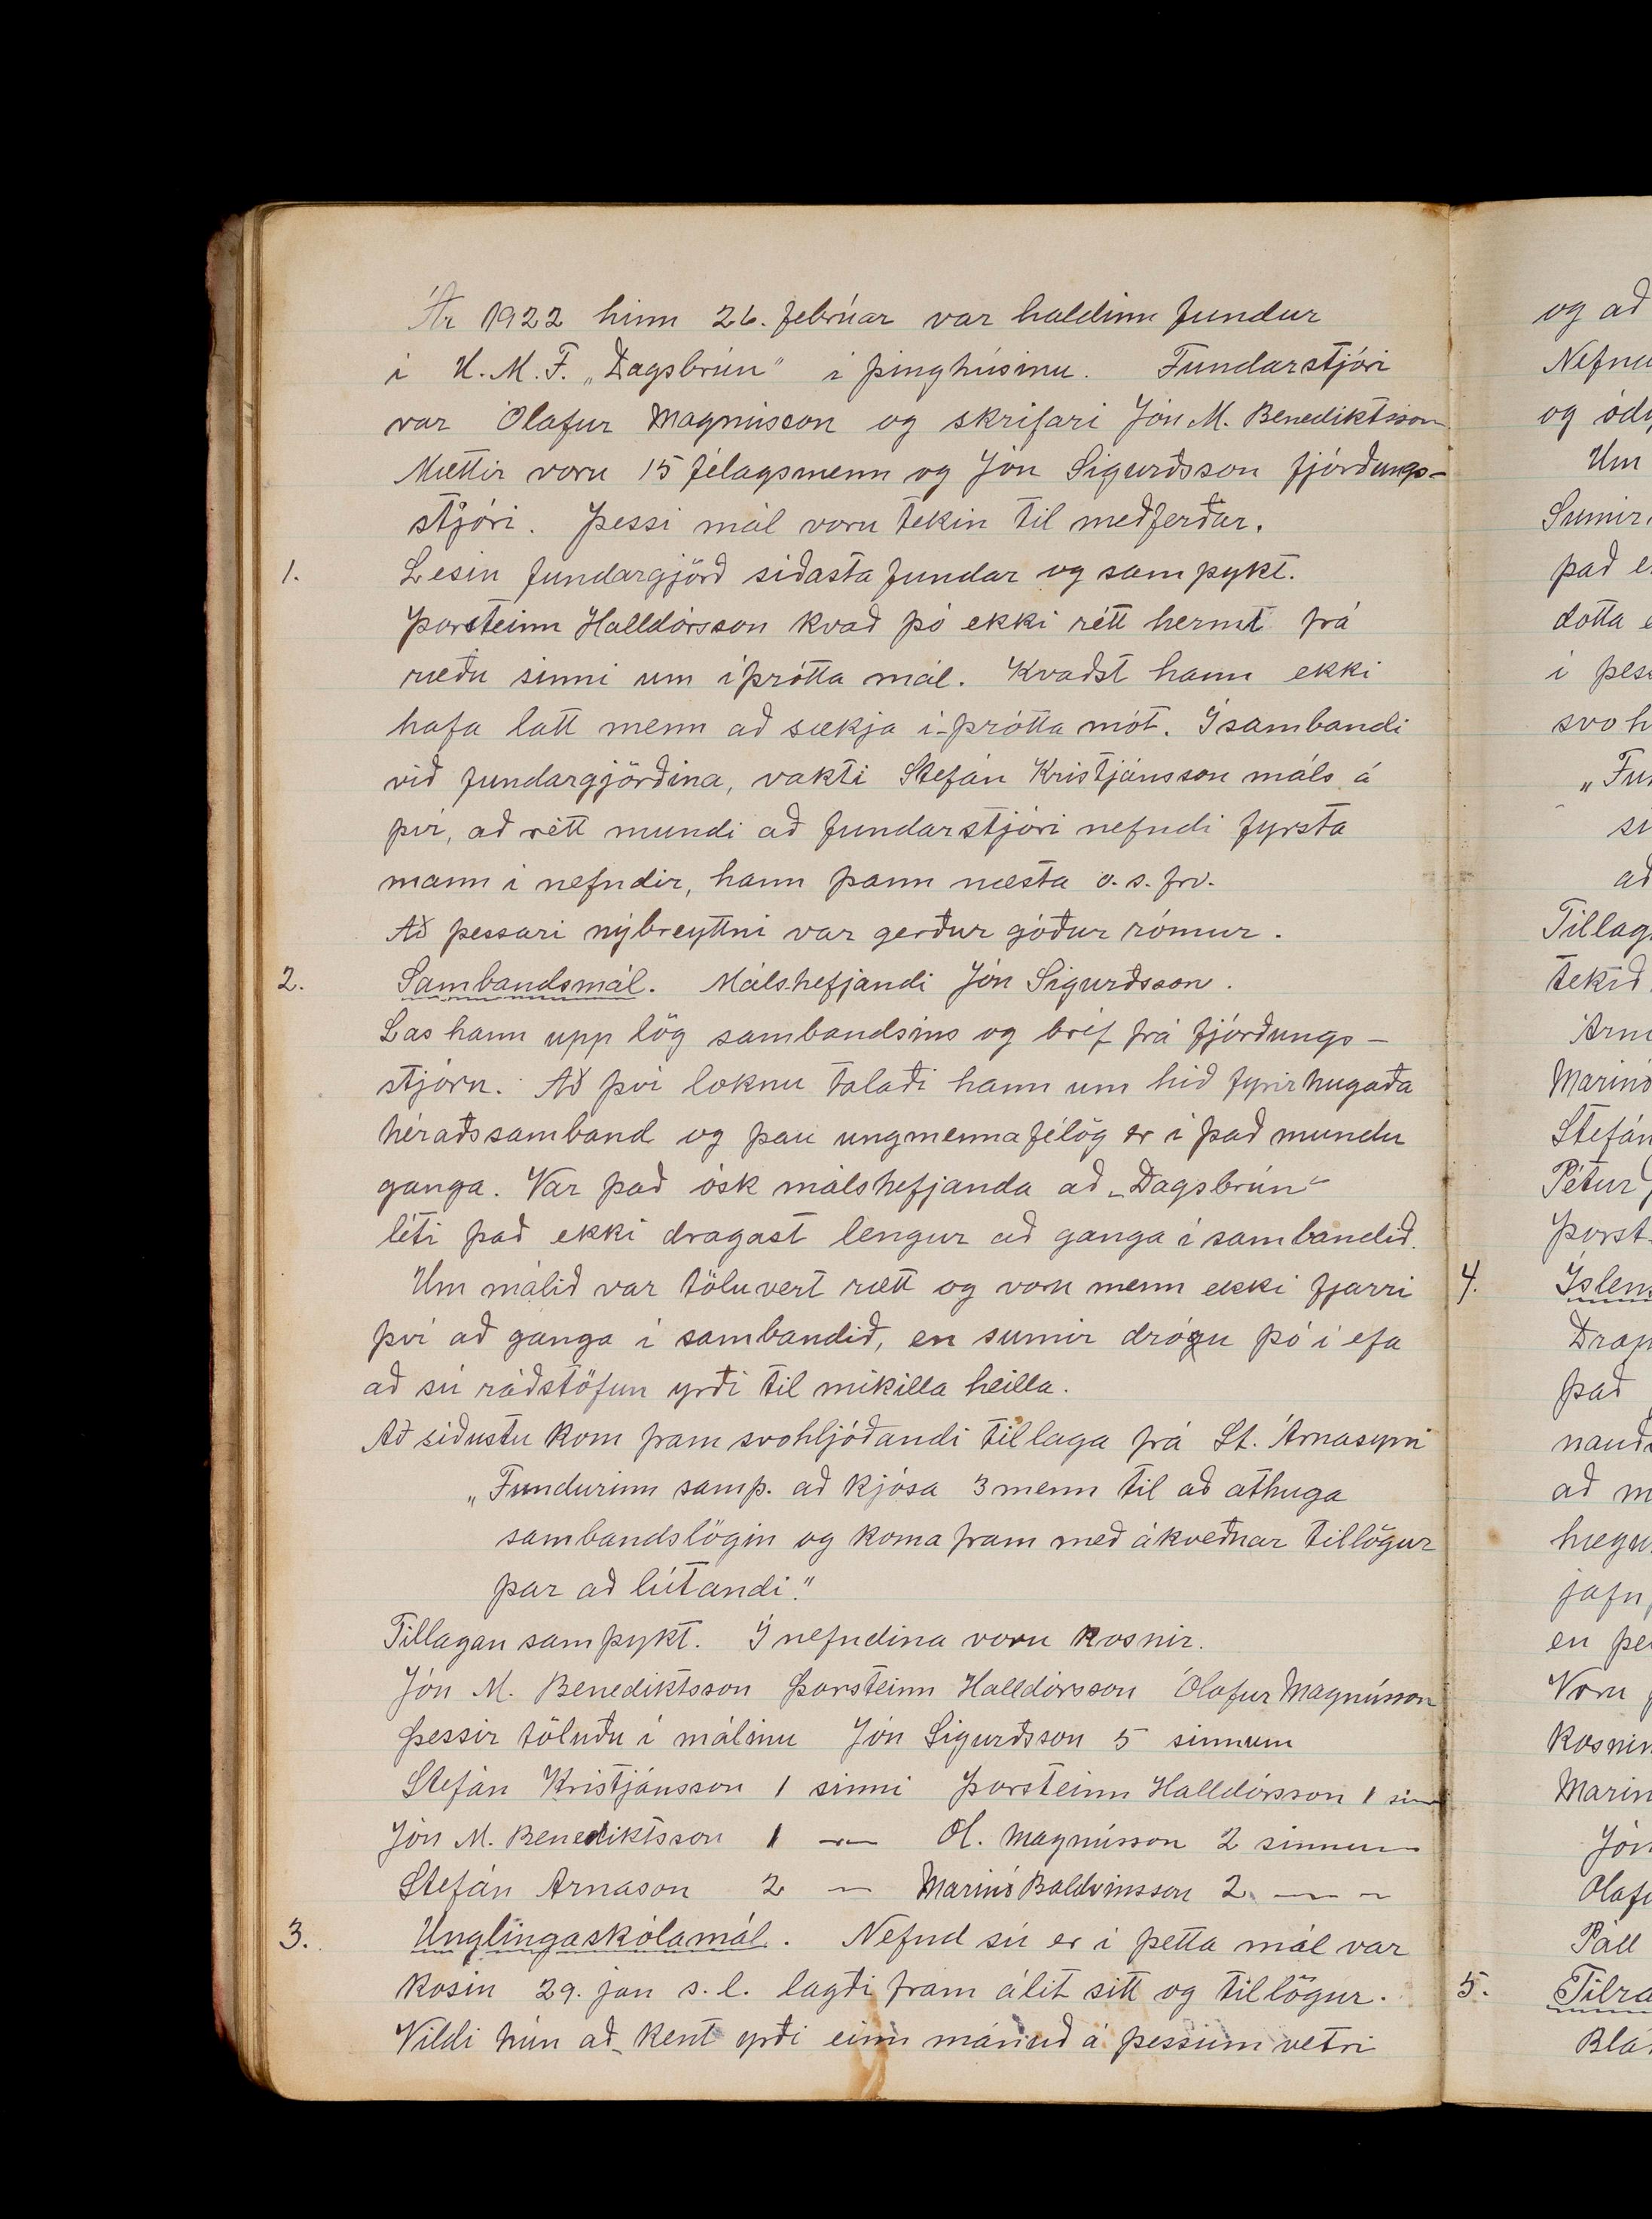 Ár 1922 hinn 26. febrúar var haldinn fundur
í U. M. F. „Dagsbrún" í þinghúsinu. Fundarstjóri
var Ólafur Magnússon og skrifari Jón M. Benediktsson
Mættir voru 15 félagsmenn og Jón Sigurðsson fjórðungs-
stjóri. Þessi mál voru tekin til meðferðar.
1. Lesin fundargjörð síðasta fundar og samþykt.
Þorsteinn Halldórsson kvað þó ekki rétt hermt frá
ræðu sinni um íþrótta mál. Kvaðst hann ekki
hafa latt menn að sækja í-þrótta mót. Í sambandi
við fundargjörðina, vakti Stefán Kristjánsson máls á
því, að rétt mundi að fundarstjóri nefndi fyrsta
mann í nefndir, hann þann næsta o. s. frv.
Að þessari nýbreyttni var gerður góður rómur.
2. Sambandsmál. Málshefjandi Jón Sigurðsson.
Las hann upp lög sambandsins og bréf frá fjórðungs-
stjórn. Að því loknu talaði hann um hið fyrirhugaða
héraðssamband og þau ungmennafélög er í það mundu
ganga. Var það ósk málshefjanda að „Dagsbrún"
léti það ekki dragast lengur að ganga í sambandið.
Um málið var töluvert rætt og voru menn ekki fjarri
því að ganga í sambandið, en sumir drógu þó í efa
að sú ráðstöfun yrði til mikilla heilla.
Að síðustu kom fram svohljóðandi tillaga frá St. Árnasyni
„Fundurinn samþ. að kjósa 3 menn til að athuga
sambandslögin og koma fram með ákveðnar tillögur
þar að lútandi."
Tillagan samþykt. Í nefndina voru kosnir.
Jón M. Benediktsson Þorsteinn Halldórsson Ólafur Magnússon
Þessir töluðu í málinu Jón Sigurðsson 5 sinnum
Stefán Kristjánsson 1 sinni Þorsteinn Halldórsson 1 sinni
Jón M. Benediktsson 1 -"- Ól. Magnússon 2 sinnum
Stefán Árnason 2 — Marinó Baldvinsson 2 -"-
3. Unglingaskólamál. Nefnd sú er í þetta mál var
kosin 29. jan s. l. lagði fram álit sitt og tillögur.
Vildi hún að kent yrði einn mánuð á þessum vetri
og að
og
Um
Sumir
það
dotta
í
svo
að
Tillag
tekið
Marinó
Stefán
Pétur
Þorst.
4.
það
að
en
Voru
Marin
Jón
Ólafu
Páll
5.